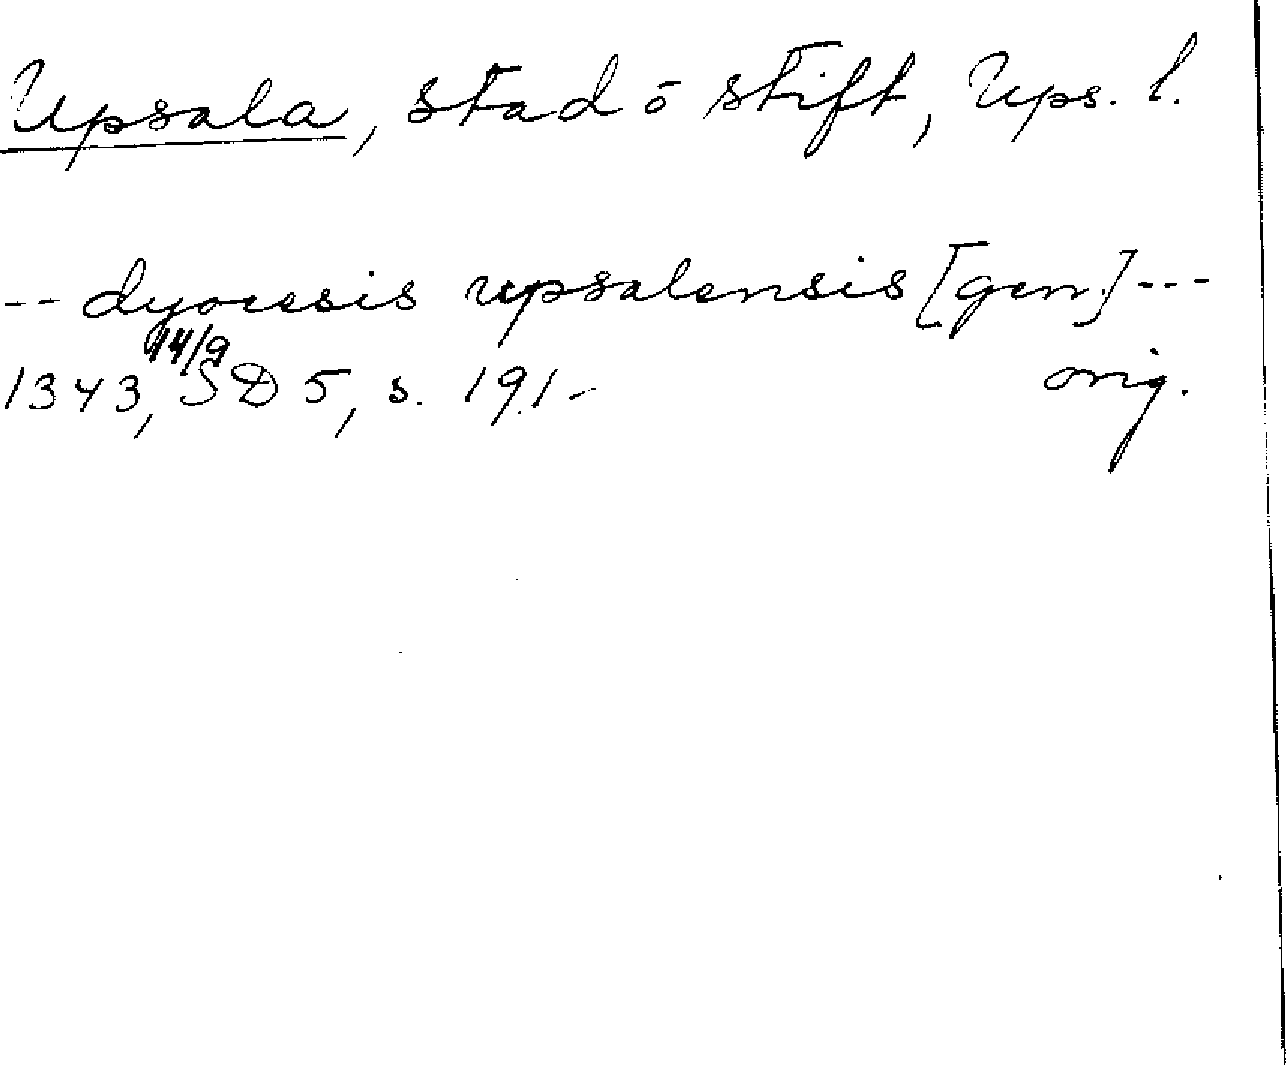 Upsala, stad o stift, Ups. l.
-- dyocesis upsalensis [gen.] ---
14/9
1343, SD 5, s. 191- orig.